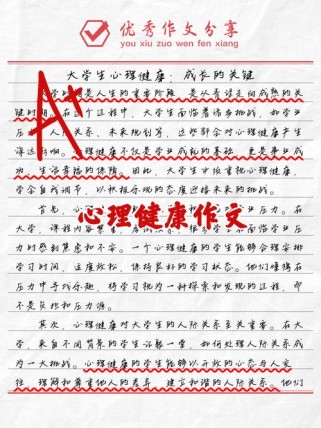 优秀作文分享
you xiu zuo wen fen xiang
大学生心理健康：成长的关键
A+
时期是人生的重要阶段，是从青涩走向成熟的关
键时期。在这个过程中，大学生面临着诸多挑战，如学业
压力、人际关系、未来规划等，这些都会对心理健康产生
深远影响。心理健康不仅是学业成就的基础，更是事业成
功、生活幸福的保障。因此，大学生应该重视心理健康，
学会自我调节，以积极乐观的态度迎接未来的挑战。
首先，心理健康
业压力。在大
学，课程内容
临学业压
心理健康作文
力时感到焦虑和不安。一个心理健康的学生能够合理安排
学习时间，适度放松，保持良好的学习状态。他们懂得在
压力中寻找乐趣，将学习视为一种探索和发现的过程，而
不是负担和压力源。
其次，心理健康对大学生的人际关系至关重要。在大
学，来自不同背景的学生汇聚一堂，如何处理人际关系成
为一大挑战。心理健康的学生能够以开放的心态与人交
往，理解和尊重他人的差异，建立和谐的人际关系。他们